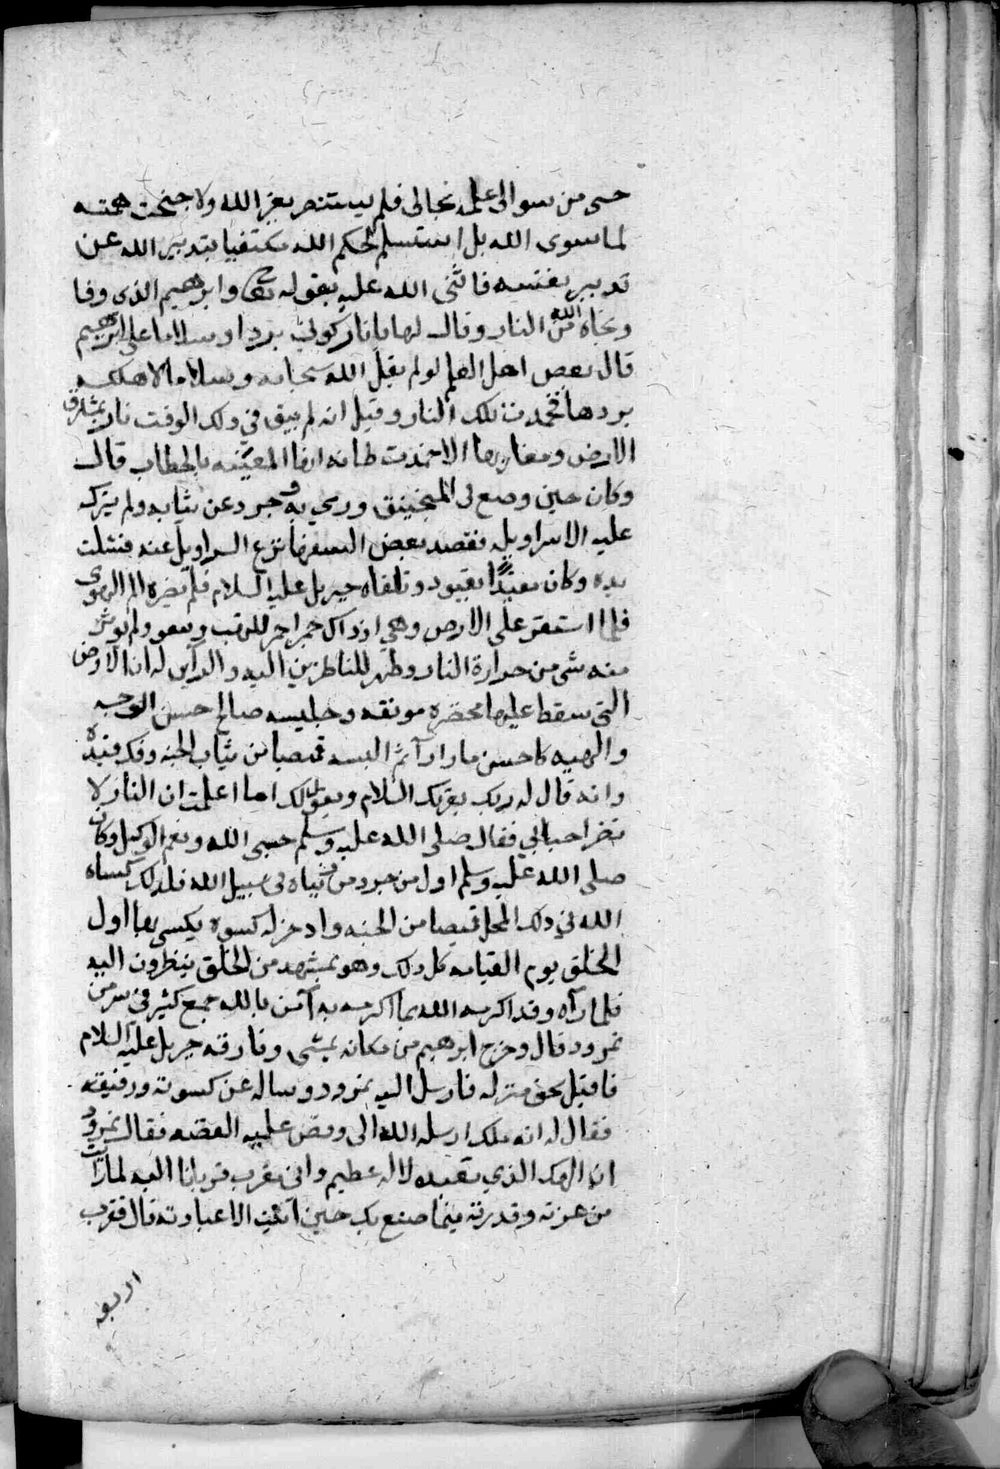 حسبي من سوالي علمه بحالي فلم يستنصر بغير الله ولا جنحت همته
لما سوى الله بل استسلم لحكم الله مكتفيا بتدبير الله عن
تدبير نفسه فاثنى الله عليه بقوله تعالى وابرهيم الذي وفا
ونجاه الله من النار وقال لها يا نار كوني بردا وسلاما على ابرهيم
قال بعض اهل العلم لو لم يقل الله سبحانه وسلاما لاهلكه
بردها فخمدت تلك النار وقيل انه لم يبق في ذلك الوقت نار بمشارق
الارض ومغاربها الا خمدت ظانه انها المعنيه بالخطاب قال
وكان حين وضع في المنجنيق ورمي به وجرد عن ثيابه ولم يترك
عليه الا سراويله فقصد بعض السفهانزع السراويل عنه فشلت
يده وكان مقيدًا بقيود وتلقاه جبريل عليه السلام فلم يضره الم الهوى
فلما استقر على الارض وهي اذ ذاك جمر احمر للهب ولم يوثر
منه شي من حرارة النار وظهر للناظرين اليه والرآين له ان الارض
التي سقط عليها مخضره مونقه وجليسه صالح حسن الوجه
والهيه كاحسن ما را رآ ثم البسه قميصا من ثياب الجنه وفك قيده
وانه قال له ربك يقريك السلام ويقول لك اما علمت ان النار لا
تضر احبابي فقال صلى الله عليه وسلم حسبي الله ونعم الوكيل وكان
صلى الله عليه وسلم اول من جرد من ثيابه في سبيل الله فلذلك كساه
الله في ذلك المحل قميصا من الجنه وادخر له كسوه يكسى بها اول
الخلق يوم القيامه كل ذلك وهو بمشهد من الخلق ينظرون اليه
فلما رآه وقد اكرمه الله بما اكرمه به آمن بالله جمع كثير في سر من
نمرود قال وخرج ابرهيم من مكانه يمشى وفارقه جبريل عليه السلام
فاقبل نحو منزله فارسل اليه نمرود وساله عن كسوته ورفيقه
فقال له انه ملك ارسله الله الى وقص عليه القصه فقال نمرود
ان الهك الذي تعبده لاله عظيم واني مقرب قربانا اليه لما رايت
من عزته وقدرته فيما صنع بك حين ابيت الا عبادته قال فقرب
اربعه